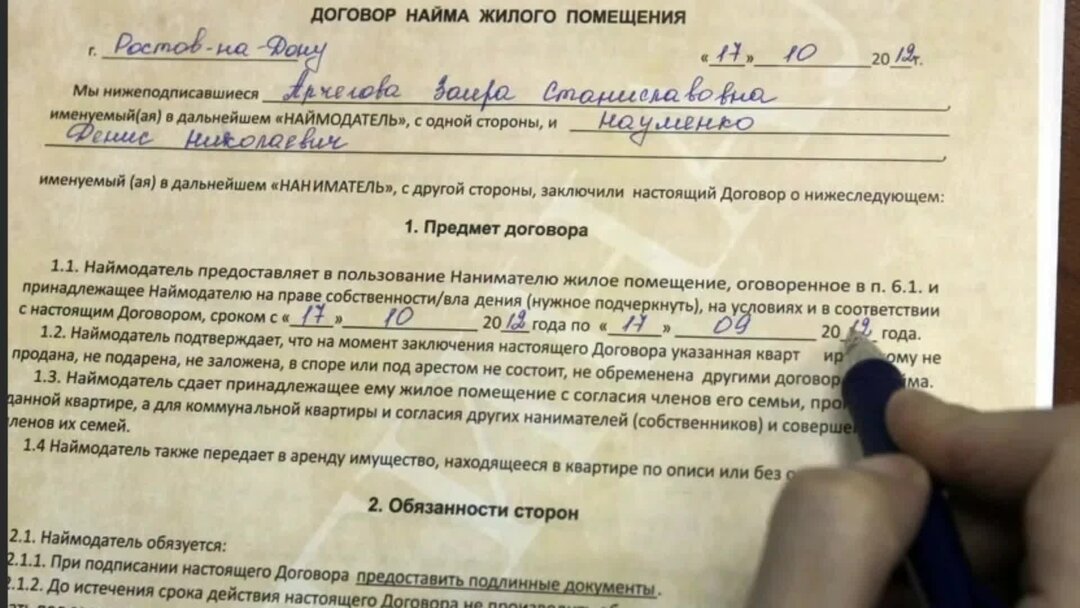 ДОГОВОР НАЙМА ЖИЛОГО ПОМЕЩЕНИЯ
г. Ростов-на-Дону «17» 10 2012г.
Мы нижеподписавшиеся Арчегова Заира Станиславовна,
именуемый(ая) в дальнейшем «НАЙМОДАТЕЛЬ», с одной стороны, и Науменко
Денис Николаевич,
именуемый (ая) в дальнейшем «НАНИМАТЕЛЬ», с другой стороны, заключили настоящий Договор о нижеследующем:
1. Предмет договора
1.1. Наймодатель предоставляет в пользование Нанимателю жилое помещение, оговоренное в п. 6.1. и
принадлежащее Наймодателю на праве собственности/вла дения (нужное подчеркнуть), на условиях и в соответствии
с настоящим Договором, сроком с «17» 10 2012 года по «17» 09 2012 года.
1.2. Наймодатель подтверждает, что на момент заключения настоящего Договора указанная кварт ому не
продана, не подарена, не заложена, в споре или под арестом не состоит, не обременена другими договор йма.
1.3. Наймодатель сдает принадлежащее ему жилое помещение с согласия членов его семьи, про
данной квартире, а для коммунальной квартиры и согласия других нанимателей (собственников) и соверше
ленов их семей.
1.4 Наймодатель также передает в аренду имущество, находящееся в квартире по описи или без о
2. Обязанности сторон
2.1. Наймодатель обязуется:
2.1.1. При подписании настоящего Договора предоставить подлинные документы.
2.1.2. До истечения срока действия настоящего Договора не